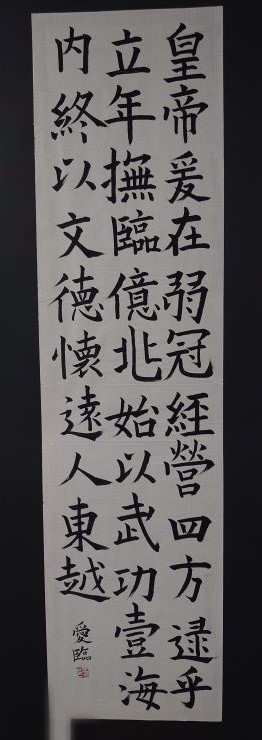 皇帝爰在弱冠經營四方逮乎
立年撫臨億兆始以武功壹海
内終以文德懷遠人東越
愛臨